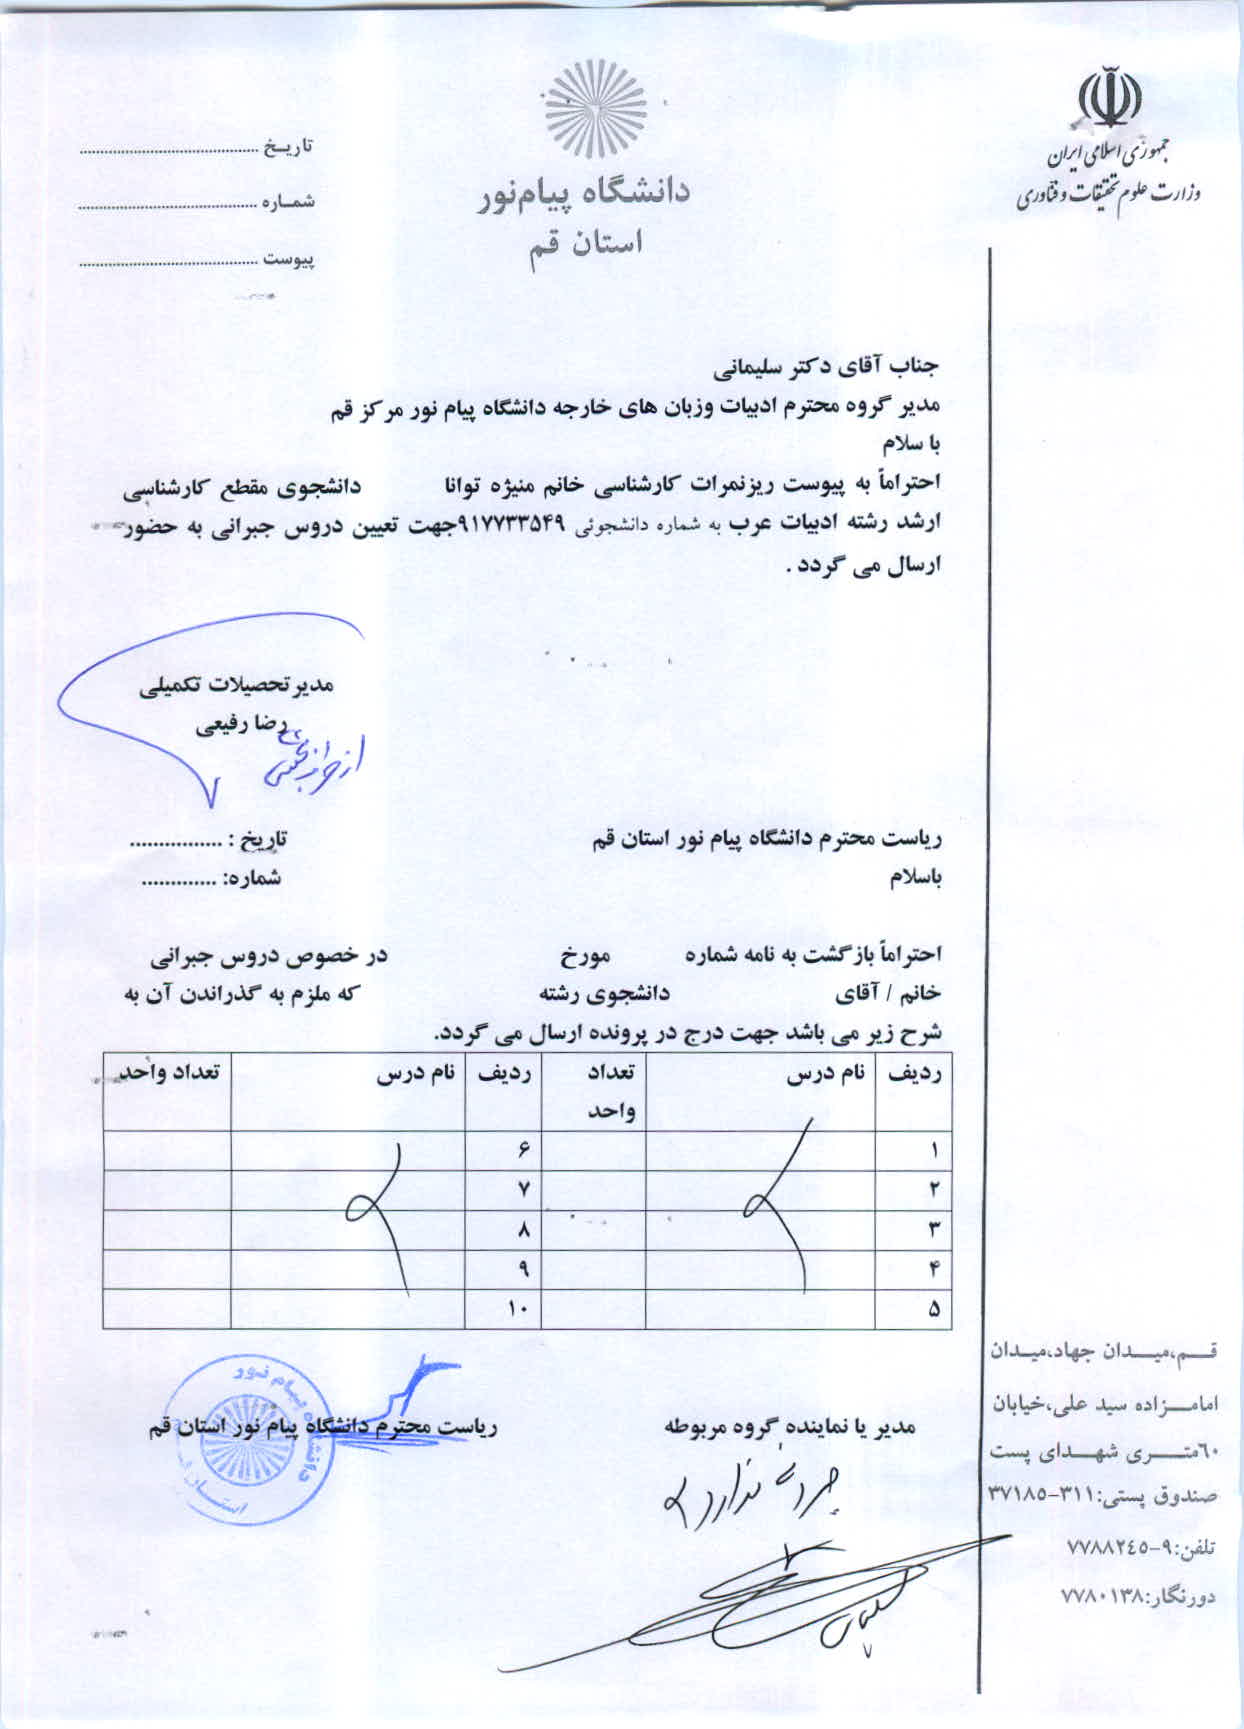 جمهوری اسلامی ایران
وزارت علوم تحقیقات و فناوری
دانشگاه پیام‌نور
استان قم
تاریـخ ......................................
شمـاره ......................................
پیوست ......................................
جناب آقای دکتر سلیمانی
مدیر گروه محترم ادبیات وزبان های خارجه دانشگاه پیام نور مرکز قم
با سلام
احتراماً به پیوست ریزنمرات کارشناسی خانم منیژه توانا دانشجوی مقطع کارشناسی
ارشد رشته ادبیات عرب به شماره دانشجوئی ۹۱۷۷۳۳۵۴۹جهت تعیین دروس جبرانی به حضور
ارسال می گردد .
مدیرتحصیلات تکمیلی
رضا رفیعی
ریاست محترم دانشگاه پیام نور استان قم
تاریخ : ................
باسلام
شماره: .............
احتراماً بازگشت به نامه شماره مورخ در خصوص دروس جبرانی
خانم / آقای دانشجوی رشته که ملزم به گذراندن آن به
شرح زیر می باشد جهت درج در پرونده ارسال می گردد.
ردیف نام درس تعداد واحد ردیف نام درس تعداد واحد
۱ ۶
۲ ۷
۳ ۸
۴ ۹
۵ ۱۰
مدیر یا نماینده گروه مربوطه
ریاست محترم دانشگاه پیام نور استان قم
ندارد
دانشگاه پیام نور
استان قم
قـــم،میـــدان جهاد،میـدان
امامـــزاده سید علی،خیابان
٦٠متـــری شهـــدای پست
صندوق پستی:۳۱۱-۳۷۱۸۵
تلفن:۹-۷۷۸۸۲٤٥
دورنگار:۷۷۸۰۱۳۸